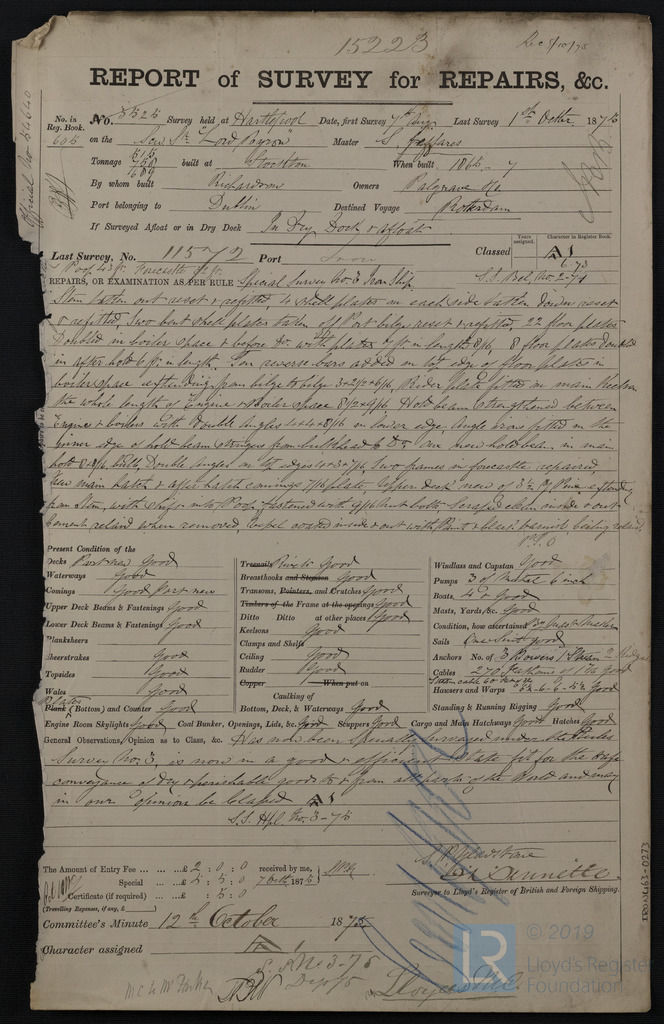 15223
Rec 5/10/75
REPORT of SURVEY for REPAIRS, &c.
No. in Reg. Book. No. 3525 Survey held at Hartlepool Date, first Survey 7th Aug Last Survey 1st Octbr 1875
605 on the Screw Str "Lord Byron" Master S. Jeffares
Tonnage 515 609 built at Stockton When built 1865 - 7
By whom built Richardson Owners Palgrave &c
Port belonging to Dublin Destined Voyage Rotterdam
If Surveyed Afloat or in Dry Dock In Dry Dock & afloat
Official No 54640
Years assigned. Character in Register Book.
Last Survey, No. 11572 Port Iron Classed A1
6,73
Poop 43 ft Forecastle ft
S.S. Bel, No. 2-71
REPAIRS, OR EXAMINATION AS PER RULE Special Survey No. 3 Iron Ship.
Stem taken out reset & refitted, 4 shell plates on each side taken down, reset
& refitted Two bent shell plates taken off Port bilge reset & refitted, 22 floor plates
Doubled in boiler space & before do. with plates ft in length 8/16, 8 floor plates doubled
in after hold 6 ft in length. Ten reverse bars added on top edge of floor plates in
boiler space extending from bilge to bilge 3 + 2½ + 6/16, Rider plate fitted on main keelson
the whole length of Engine & Boiler space 8½ + 9/16, Hold beam strengthened between
Engine & boilers with double angles 4+4+8/16 on lower edge, angle irons fitted on the
inner edge of hold beam stringers from bulkhead to do One new hold beam in main
hold 8+8/16 Bulb, Double angles on top edge 4+3+7/16, Two frames in forecastle repaired,
New main hatch & after hatch comings 7/16 plate, Upper deck new of 3½ Y Pine extending
from Stem, with Ships into Poop fastened with 9/16 nut bolts Scraped clean inside & out
Cement relaid when removed, Vessel coated inside & out with Paint & black varnish Ceiling relaid.
P.T.O
Present Condition of the
Decks Part new Good
Waterways Good
Comings Good Part new
Upper Deck Beams & Fastenings Good
Lower Deck Beams & Fastenings Good
Planksheers
Sheerstrakes Good
Topsides Good
Wales Good
Plates
Plank (Bottom) and Counter Good
Treenails Rivets Good
Breasthooks and Stemson Good
Transoms, Pointers, and Crutches Good
Timbers of the Frame at the openings Good
Ditto Ditto at other places Good
Keelsons Good
Clamps and Shelfs
Ceiling Good
Rudder Good
Copper When put on
Caulking of
Bottom, Deck, & Waterways Good
Windlass and Capstan Good
Pumps 3 of Metal 6 inch
Boats 4 Good
Masts, Yards, &c. Good
Condition, how ascertained
Sails One Suit good
Anchors No. of 3 Bowers 1 Stream 2 Kedges
Cables 270 fathoms of 1 7/16 Good
Stream cable 60
Hawsers and Warps Good
Standing & Running Rigging Good
Engine Room Skylights Good Coal Bunker, Openings, Lids, &c. Good Scuppers Good Cargo and Main Hatchways Good Hatches Good
General Observations, Opinion as to Class, &c. Has now been specially surveyed under the Rules
Survey No. 3, is now in a good & efficient state fit for the safe
conveyance of Dry & perishable goods to & from all parts of the World and may
in our opinion be Classed A1
S.S. Hpl. No. 3 - 75
The Amount of Entry Fee ... ... £ 2 : 0 : 0 received by me,
Special ... £ 5 : 5 : 0 7 Octr 1875
Certificate (if required) ... £ : 5 : 0
(Travelling Expenses, if any, £ )
Surveyor to Lloyd's Register of British and Foreign Shipping.
Committee's Minute 12th October 1875
Character assigned
S.S No 3-75
IRON463-0273
© 2019
LR
Lloyd's Register
Foundation